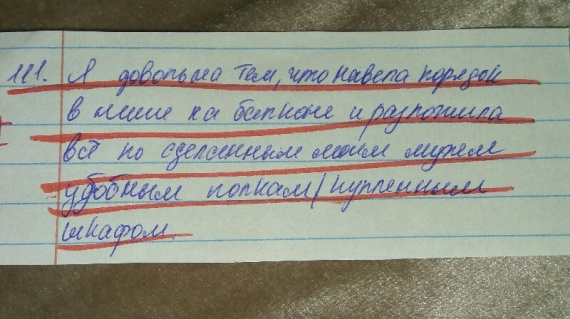 111. Я довольна тем, что навела порядок
в нише на балконе и разложила
всё по сделанным моим мужем
удобным полкам/купленным
шкафом.